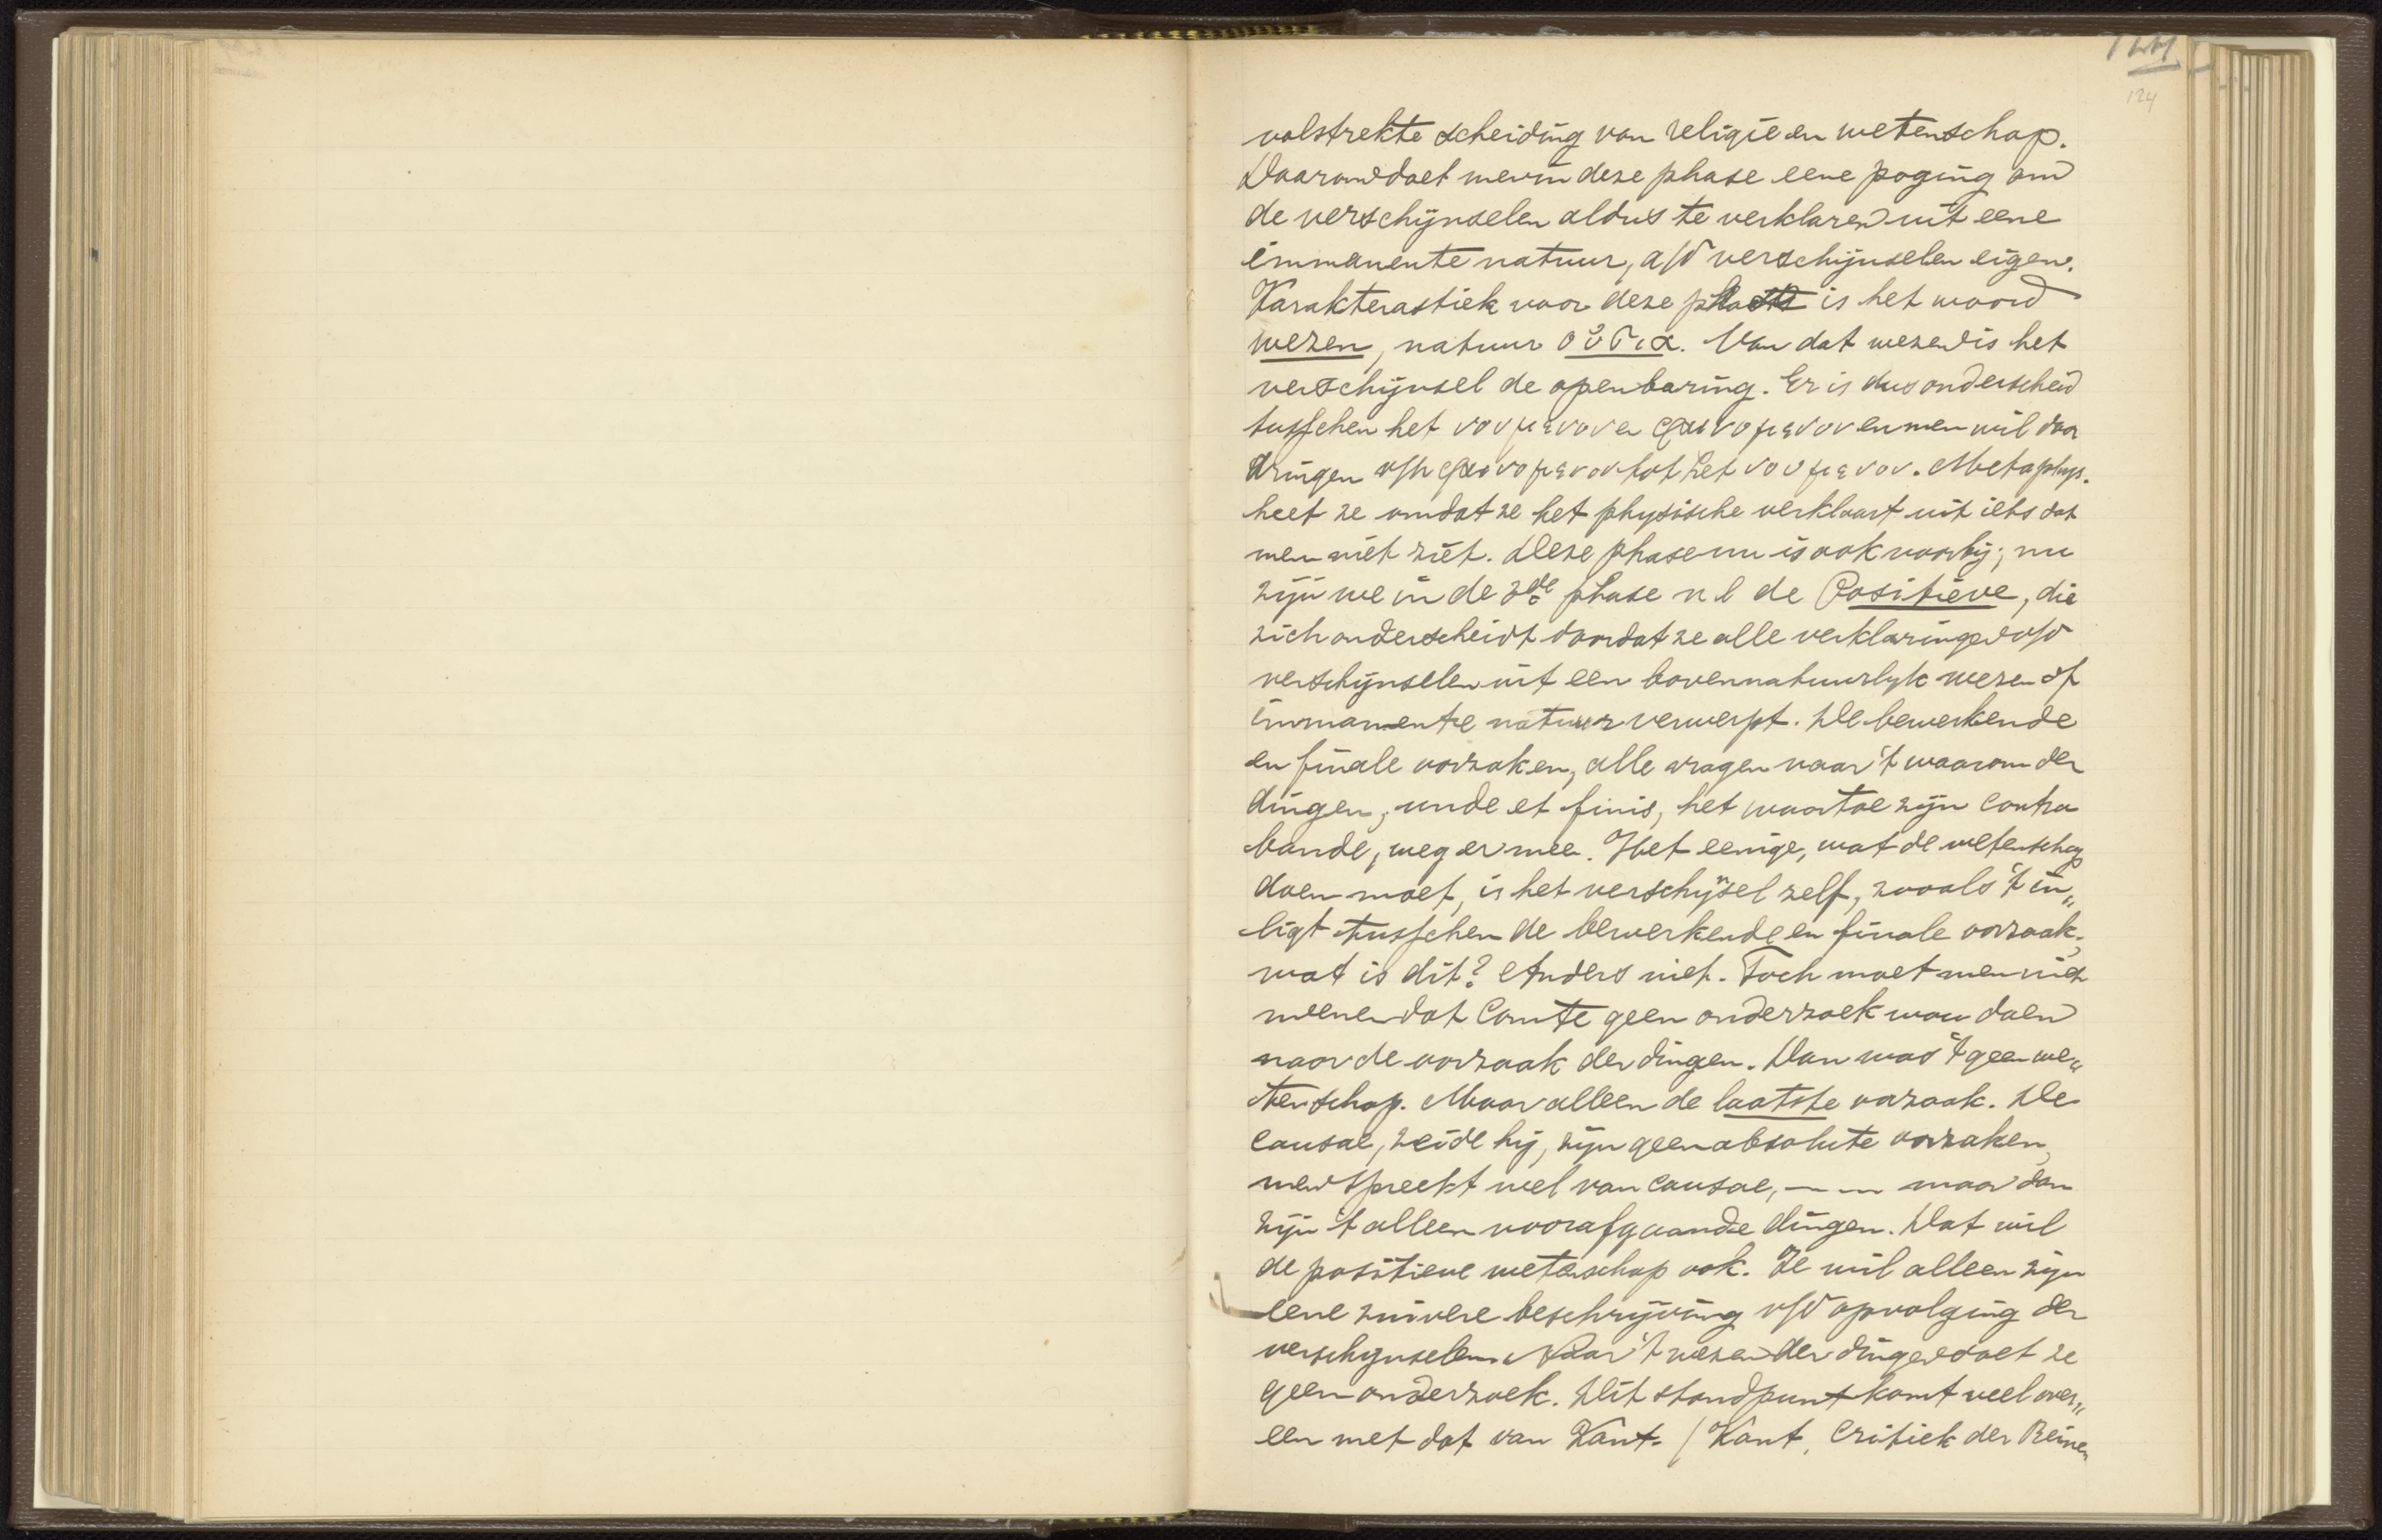 124
volstrekte scheiding van religie en wetenschap.
Daarom doet men in deze phase eene poging om
de verschijnselen aldus te verklaren uit eene
immanente natuur, a/d verschijnselen eigen.
Karakterastiek voor deze phase is het woord
wezen, natuur οὐσια. Van dat wezen is het
verschijnsel de openbaring. Er is dus onderscheid
tusschen het νουμενον en φαινομενον en men wil door
dringen v/h φαινομενον tot het νουμενον. Metaphys.
heet ze omdat ze het physische verklaart uit iets dat
men niet ziet. Deze phase nu is ook voorbij; nu
zijn we in de 3de phase n.l. de Positieve, die
zich onderscheidt doordat ze alle verklaringen v/d
verschijnselen uit een bovennatuurlyk wezen of
immanente natuur verwerpt. De bewerkende
en finale oorzaken, alle vragen naar 't waarom der
dingen, unde et finis, het waartoe zijn contra
bande, weg er mee. Het eenige, wat de wetenschap
doen moet, is het verschijnsel zelf, zooals 't in„
ligt tusschen de bewerkende en finale oorzaak;
wat is dit? Anders niet. Toch moet men niet
meenen dat Comte geen onderzoek wou doen
naar de oorzaak der dingen. Dan was 't geen we„
tenschap. Maar alleen de laatste oorzaak. De
causae, zeide hij, zijn geen absolute oorzaken,
men spreekt wel van causae, — — maar dan
zijn 't alleen voorafgaande dingen. Dat wil
de positieve wetenschap ook. Ze wil alleen zijn
eene zuivere beschrijving v/d opvolging der
verschynselen. Naar 't wezen der dingen doet ze
geen onderzoek. Dit standpunt komt veel over„
een met dat van Kant. (Kant, Critiek der Reinen